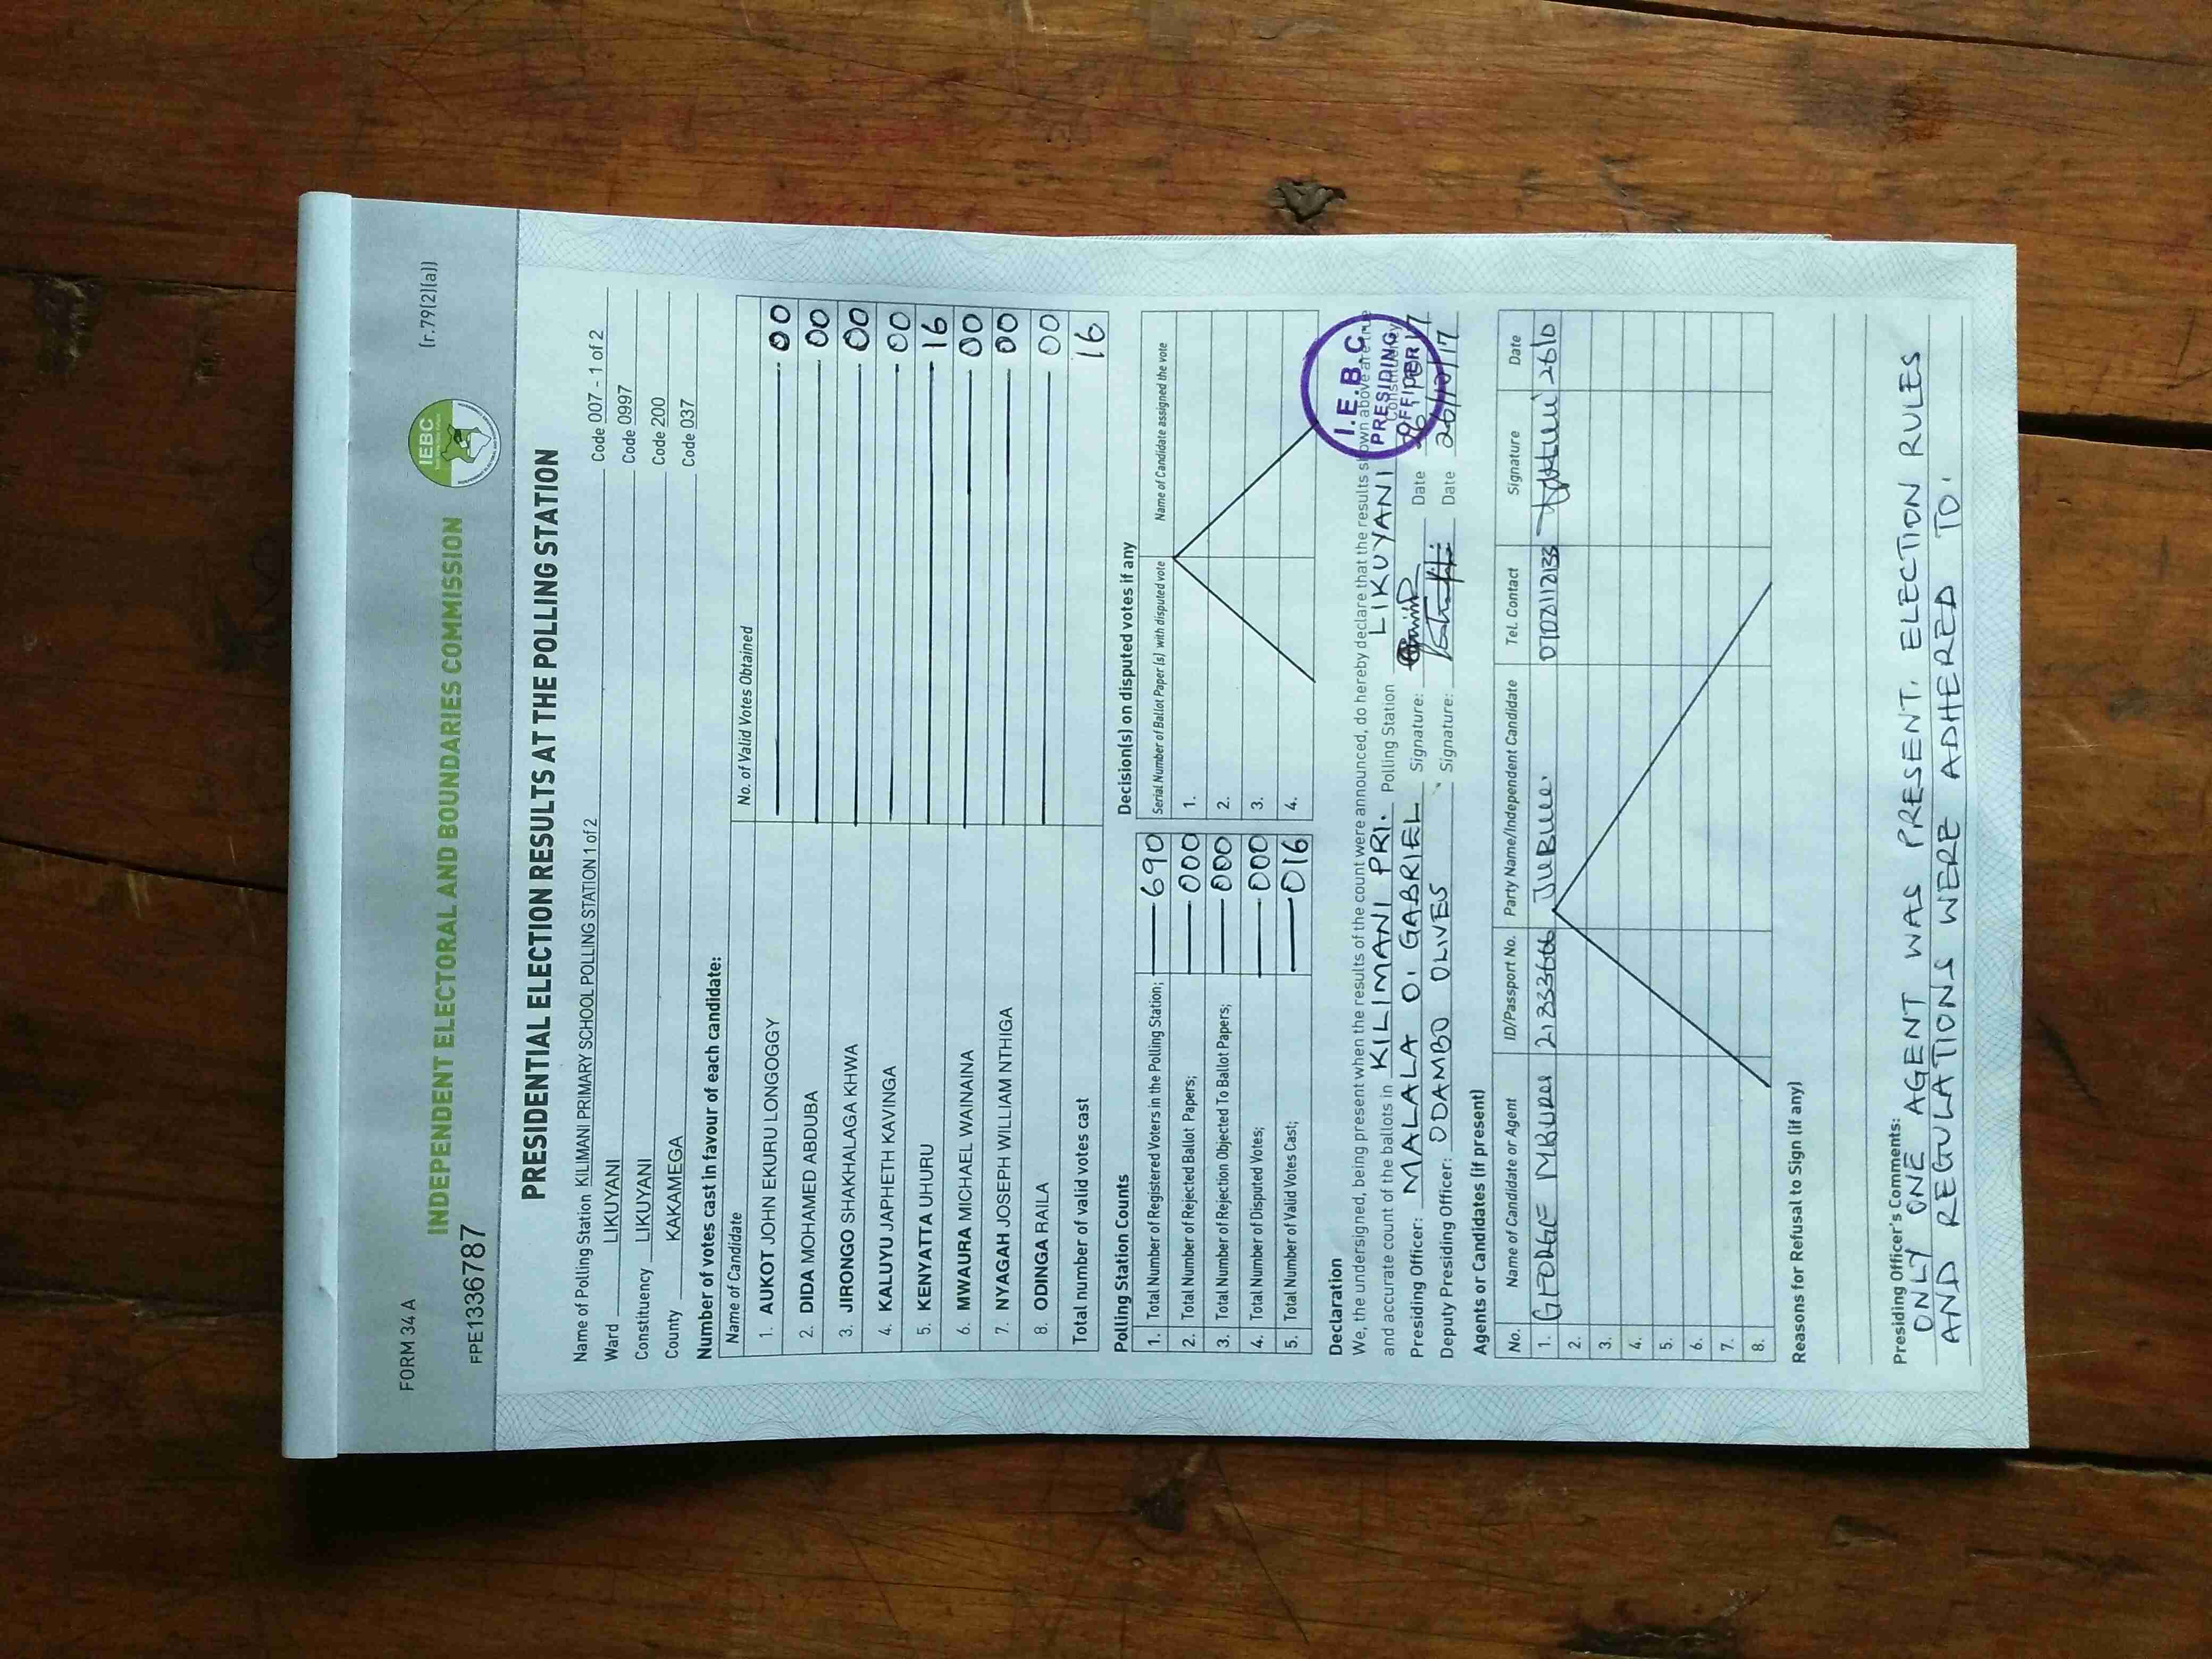 FORM 34 A
(r.79(2)(a))
IEBC
INDEPENDENT ELECTORAL AND BOUNDARIES COMMISSION
FPE1336787
PRESIDENTIAL ELECTION RESULTS AT THE POLLING STATION
Name of Polling Station KILIMANI PRIMARY SCHOOL POLLING STATION 1 of 2 Code 007 - 1 of 2
Ward LIKUYANI Code 0997
Constituency LIKUYANI Code 200
County KAKAMEGA Code 037
Number of votes cast in favour of each candidate:
Name of Candidate No. of Valid Votes Obtained
1. AUKOT JOHN EKURU LONGOGGY 00
2. DIDA MOHAMED ABDUBA 00
3. JIRONGO SHAKHALAGA KHWA 00
4. KALUYU JAPHETH KAVINGA 00
5. KENYATTA UHURU 16
6. MWAURA MICHAEL WAINAINA 00
7. NYAGAH JOSEPH WILLIAM NTHIGA 00
8. ODINGA RAILA 00
Total number of valid votes cast 16
Polling Station Counts
1. Total Number of Registered Voters in the Polling Station; 690
2. Total Number of Rejected Ballot Papers; 000
3. Total Number of Rejection Objected To Ballot Papers; 000
4. Total Number of Disputed Votes; 000
5. Total Number of Valid Votes Cast; 016
Decision(s) on disputed votes if any
Serial Number of Ballot Paper (s) with disputed vote Name of Candidate assigned the vote
1.
2.
3.
4.
Declaration
We, the undersigned, being present when the results of the count were announced, do hereby declare that the results shown above are true
and accurate count of the ballots in KILIMANI PRI. Polling Station LIKUYANI Constituency
Presiding Officer: MALALA O. GABRIEL Signature: Date 26/10/17
Deputy Presiding Officer: ODAMBO OLIVES Signature: Date 26/10/17
I.E.B.C
PRESIDING
OFFICER
Agents or Candidates (if present)
No. Name of Candidate or Agent ID/Passport No. Party Name/Independent Candidate Tel. Contact Signature Date
1. GEORGE 21333666 JUBILEE. 0702112133 26/10
2.
3.
4.
5.
6.
7.
8.
Reasons for Refusal to Sign (if any)
Presiding Officer's Comments:
ONLY ONE AGENT WAS PRESENT. ELECTION RULES
AND REGULATIONS WERE ADHERED TO.